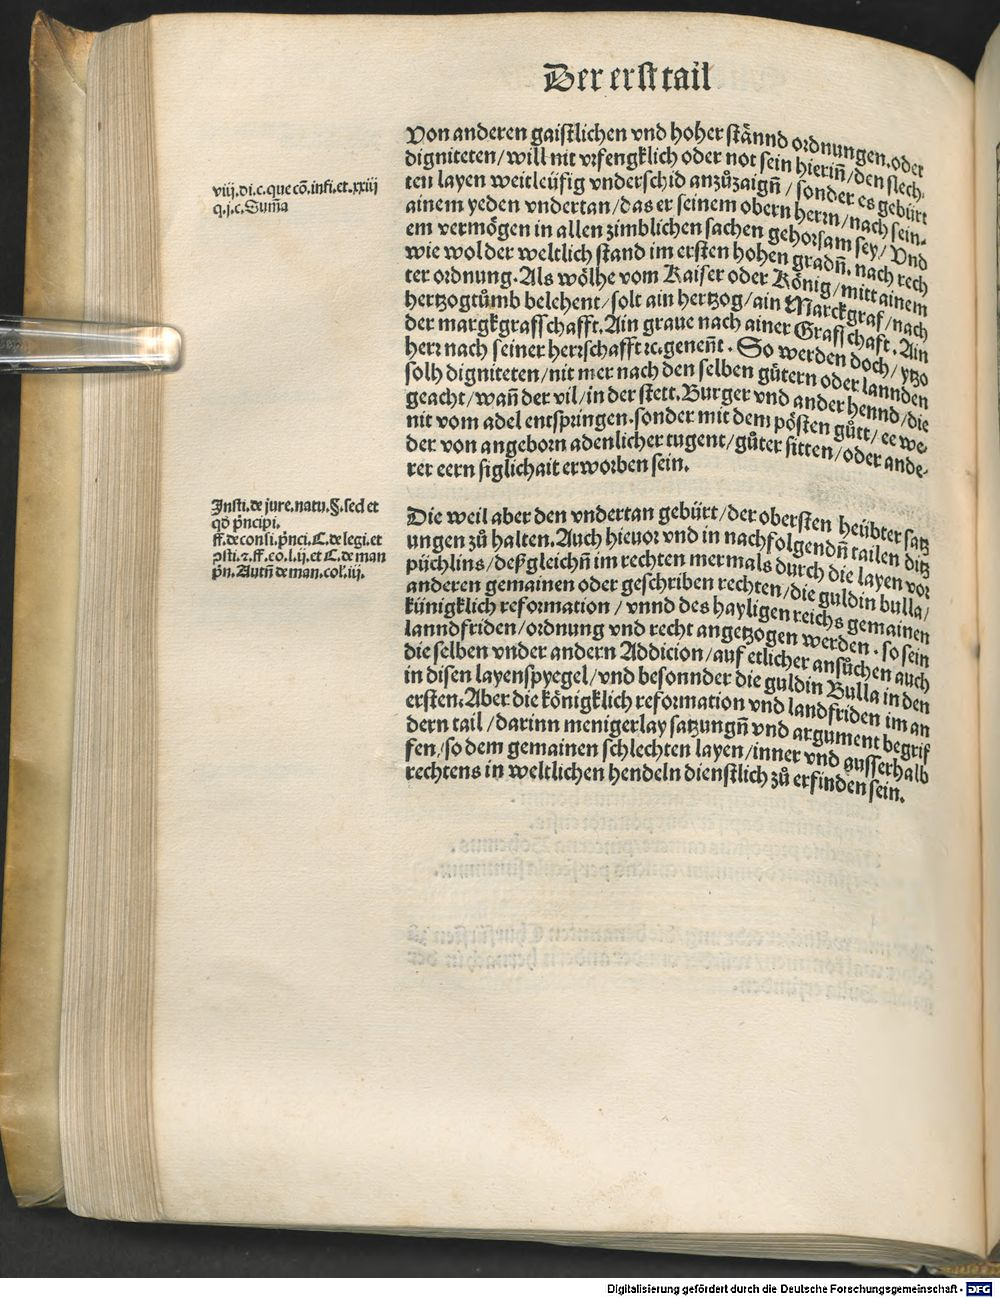 Der erst tail
Von anderen gaistlichen vnd hoher stännd ordnungen, oder
digniteten/ will nit vrsengklich oder not sein hierin̄/ den slech,
ten layen weitleüfig vnderschid anzůzaign̄/ sonder es gebürt
ainem yeden vndertan/ das er seinem obern herrn/ nach sein-
em vermögen in allen zimblichen sachen gehorsam sey/ Vnd
wie wol der weltlich stand im ersten hohen gradn̄. nach rech
ter ordnung. Als wölhe vom Kaiser oder König/ mitt ainem
hertzogtůmb belehent/ solt ain hertzog/ ain Marckgraf/ nach
der margkgrafschafft. Ain graue nach ainer Grafschaft. Ain
herr nach seiner herrschafft ⁊c. genen̄t. So werden doch/ ytzo
solh digniteten/ nit mer nach den selben gůtern oder lannden
geacht/ wan̄ der vil/ in der stett. Burger vnd ander hennd/ die
nit vom adel entspringen. sonder mit dem pösten gůtt/ ee we-
der von angeborn adenlicher tugent/ gůter sitten/ oder ande-
rer eern siglichait erworben sein.
viij. di. c. que cō. infi. et. xxiij
q. j. c. Sum̄a
Die weil aber den vndertan gebürt/ der obersten heübter satz
ungen zů halten. Auch hieuor vnd in nachfolgendn̄ tailen ditz
püchlins/ deßgleichn̄ im rechten mermals durch die layen vor
anderen gemainen oder geschriben rechten/ die guldin bulla/
künigklich reformation/ vnnd des hayligen reichs gemainen
lanndfriden/ ordnung vnd recht angetzogen werden. so sein
die selben vnder andern Addicion/ auf etlicher ansůchen auch
in disen layenspyegel/ vnd besonnder die guldin Bulla in den
ersten. Aber die königklich reformation vnd landfriden im an
dern tail/ darinn menigerlay satzungn̄ vnd argument begrif
fen/ so dem gemainen schlechten layen/ inner vnd ausserhalb
rechtens in weltlichen hendeln dienstlich zů erfinden sein.
Insti. de jure. natu. §. sed et
qđ p̄ncipi.
ff. de consi. p̄nci. C. de legi. et
ↄsti. ⁊. ff. eo. l. ij. et C. de man
p̄n. Autn̄ de man. col. iij.
Digitalisierung gefördert durch die Deutsche Forschungsgemeinschaft - DFG